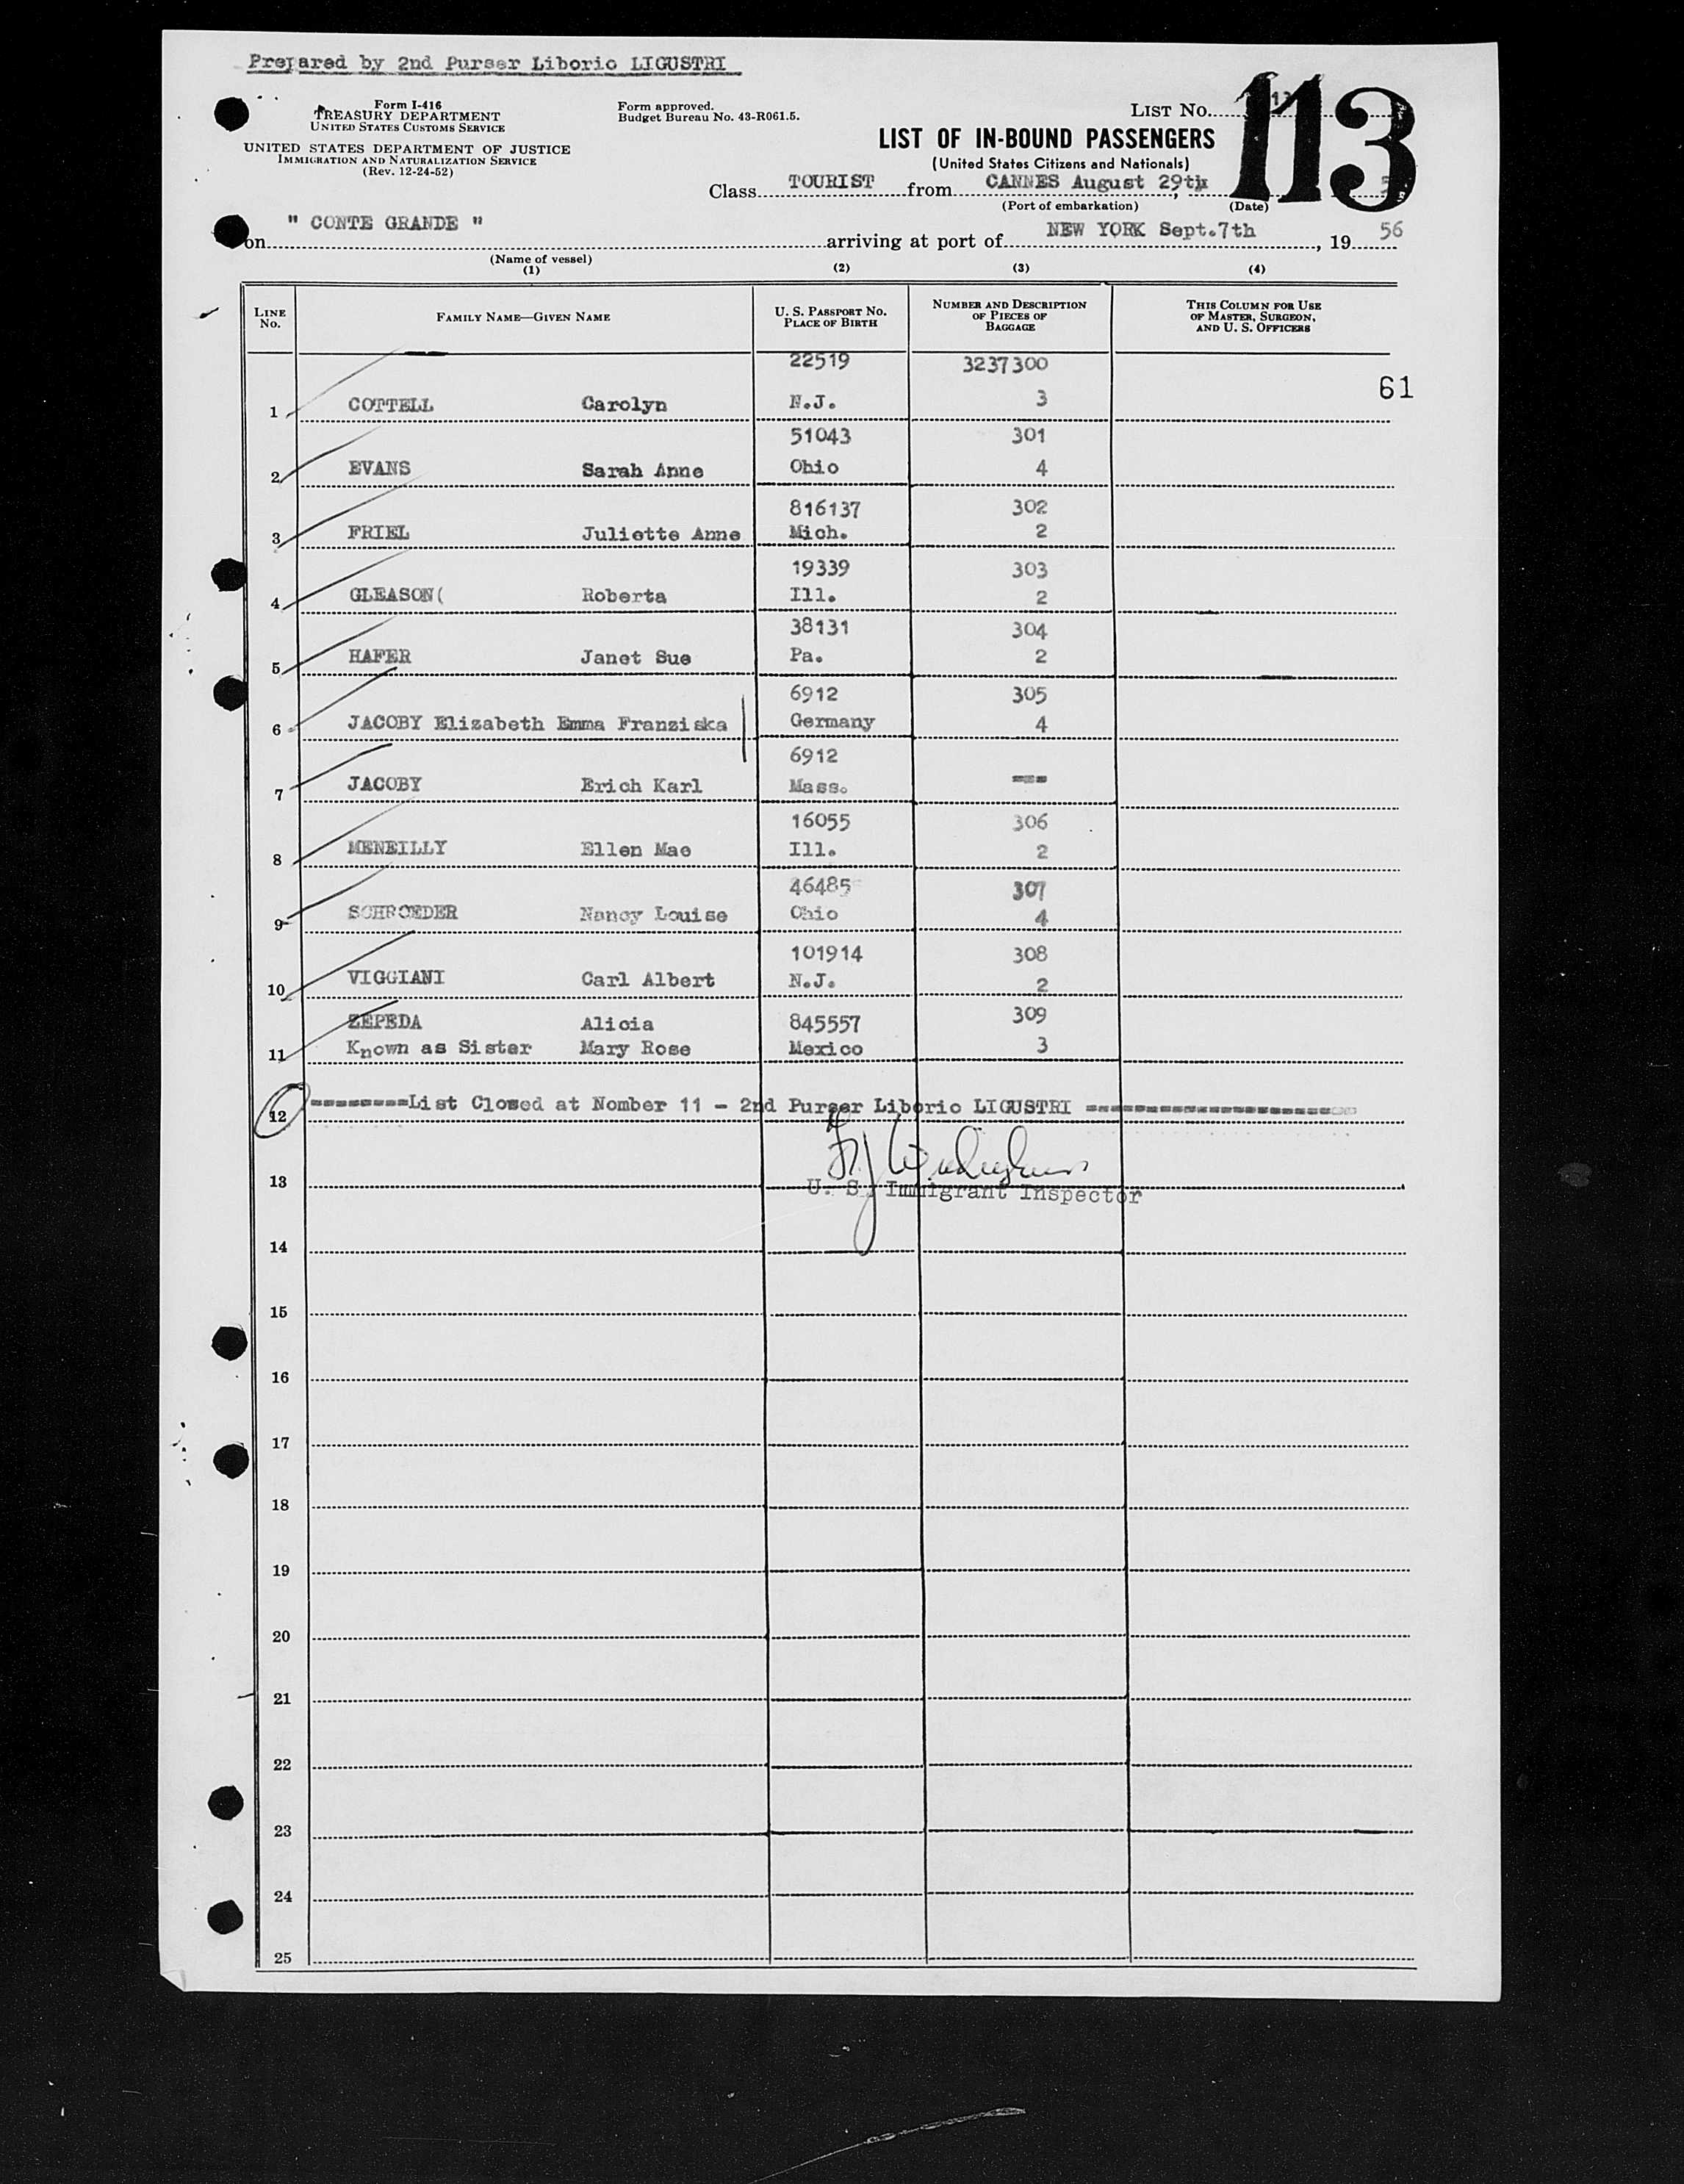 Prepared by 2nd Purser Liborio LIGUSTRI
Form I-416
TREASURY DEPARTMENT
UNITED STATES CUSTOMS SERVICE
UNITED STATES DEPARTMENT OF JUSTICE
IMMIGRATION AND NATURALIZATION SERVICE
(Rev. 12-24-52)
Form approved.
Budget Bureau No. 43-R061.5.
LIST NO. 113
LIST OF IN-BOUND PASSENGERS
(United States Citizens and Nationals)
Class TOURIST from CANNES August 29th
(Port of embarkation) (Date)
on " CONTE GRANDE " arriving at port of NEW YORK Sept.7th, 19 56
(Name of vessel)
(1) (2) (3) (4)
LINE No. FAMILY NAME—GIVEN NAME U. S. PASSPORT NO. PLACE OF BIRTH NUMBER AND DESCRIPTION OF PIECES OF BAGGAGE THIS COLUMN FOR USE OF MASTER, SURGEON, AND U. S. OFFICERS
22519 3237300
61
1 COTTELL Carolyn N.J. 3
51043 301
2 EVANS Sarah Anne Ohio 4
816137 302
3 FRIEL Juliette Anne Mich. 2
19339 303
4 GLEASON( Roberta Ill. 2
38131 304
5 HAFER Janet Sue Pa. 2
6912 305
6 JACOBY Elizabeth Emma Franziska Germany 4
6912
7 JACOBY Erich Karl Mass. ---
16055 306
8 MENEILLY Ellen Mae Ill. 2
46485 307
9 SCHROEDER Nancy Louise Ohio 4
101914 308
10 VIGGIANI Carl Albert N.J. 2
ZEPEDA Alicia 845557 309
11 Known as Sister Mary Rose Mexico 3
12 =========List Closed at Nomber 11 - 2nd Purser Liborio LIGUSTRI =======================
13 U. S. Immigrant Inspector
14
15
16
17
18
19
20
21
22
23
24
25